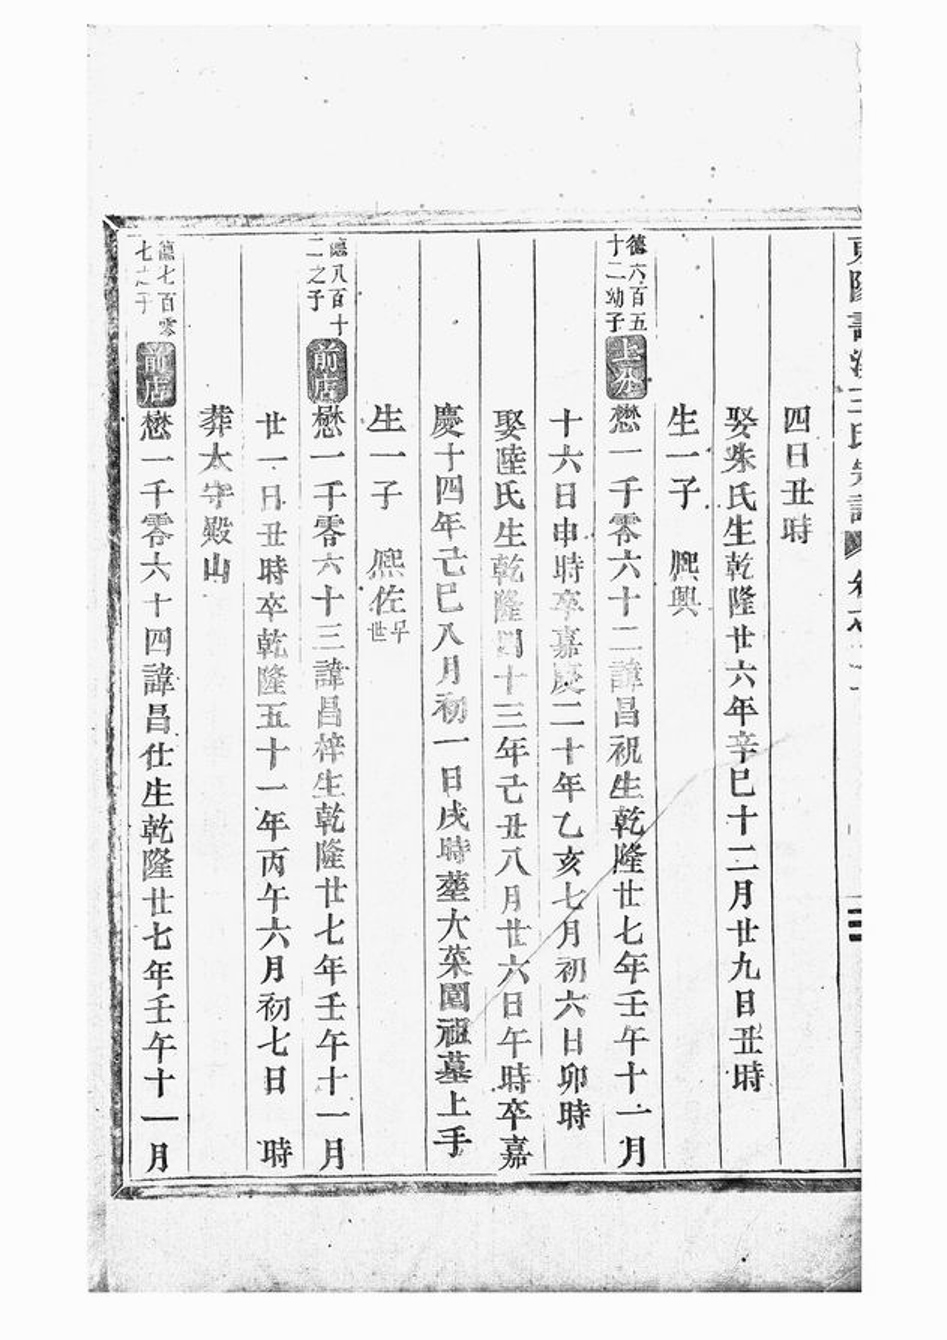 四日丑時
娶朱氏生乾隆廿六年辛巳十二月廿九日丑時
生一子　熙興
德六百五
十二幼子
上分
懋一千零六十二諱昌祝生乾隆廿七年壬午十一月
十六日申時卒嘉慶二十年乙亥七月初六日卯時
娶陸氏生乾隆四十三年己丑八月廿六日午時卒嘉
慶十四年己巳八月初一日戌時塟大菜園祖墓上手
生一子　熙佐
早
世
德八百十
二之子
前店
懋一千零六十三諱昌梓生乾隆廿七年壬午十一月
廿一日丑時卒乾隆五十一年丙午六月初七日　時
葬太守殿山
德七百零
七之子
前店
懋一千零六十四諱昌仕生乾隆廿七年壬午十一月